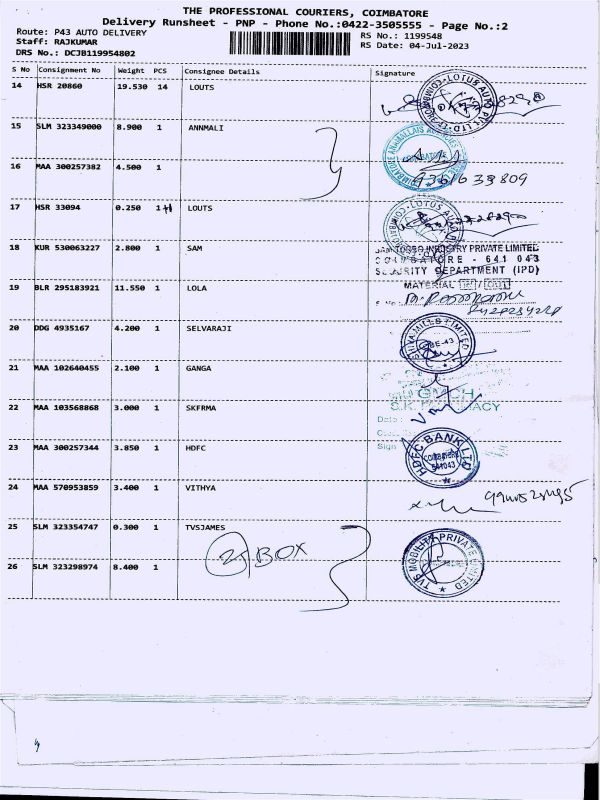 THE PROFESSIONAL COURIERS, COIMBATORE
Delivery Runsheet - PNP - Phone No.:0422-3505555 - Page No.:2
Route: P43 AUTO DELIVERY RS No.: 1199548
Staff: RAJKUMAR RS Date: 04-Jul-2023
DRS No.: DCJB119954802
S No Consignment No Weight PCS Consignee Details Signature
14 HSR 20860 19.530 14 LOUTS
15 SLM 323349000 8.900 1 ANNMALI
16 MAA 300257382 4.500 1
9361633809
17 HSR 33094 0.250 1 LOUTS
18 KUR 530063227 2.800 1 SAM
INDUSTRY PRIVATE LIMITED
COIMBATORE - 641 043
SECURITY DEPARTMENT (IPD)
19 BLR 295183921 11.550 1 LOLA
MATERIAL IN / OUT
20 DDG 4935167 4.200 1 SELVARAJI
SHIVA MILLS LIMITED
21 MAA 102640455 2.100 1 GANGA
22 MAA 103568868 3.000 1 SKFRMA
Date :
Sign
23 MAA 300257344 3.850 1 HDFC
HDFC BANK LTD
COIMBATORE
641043
24 MAA 570953859 3.400 1 VITHYA
25 SLM 323354747 0.300 1 TVSJAMES
BOX
26 SLM 323298974 8.400 1
TVS MOBILITY PRIVATE LIMITED